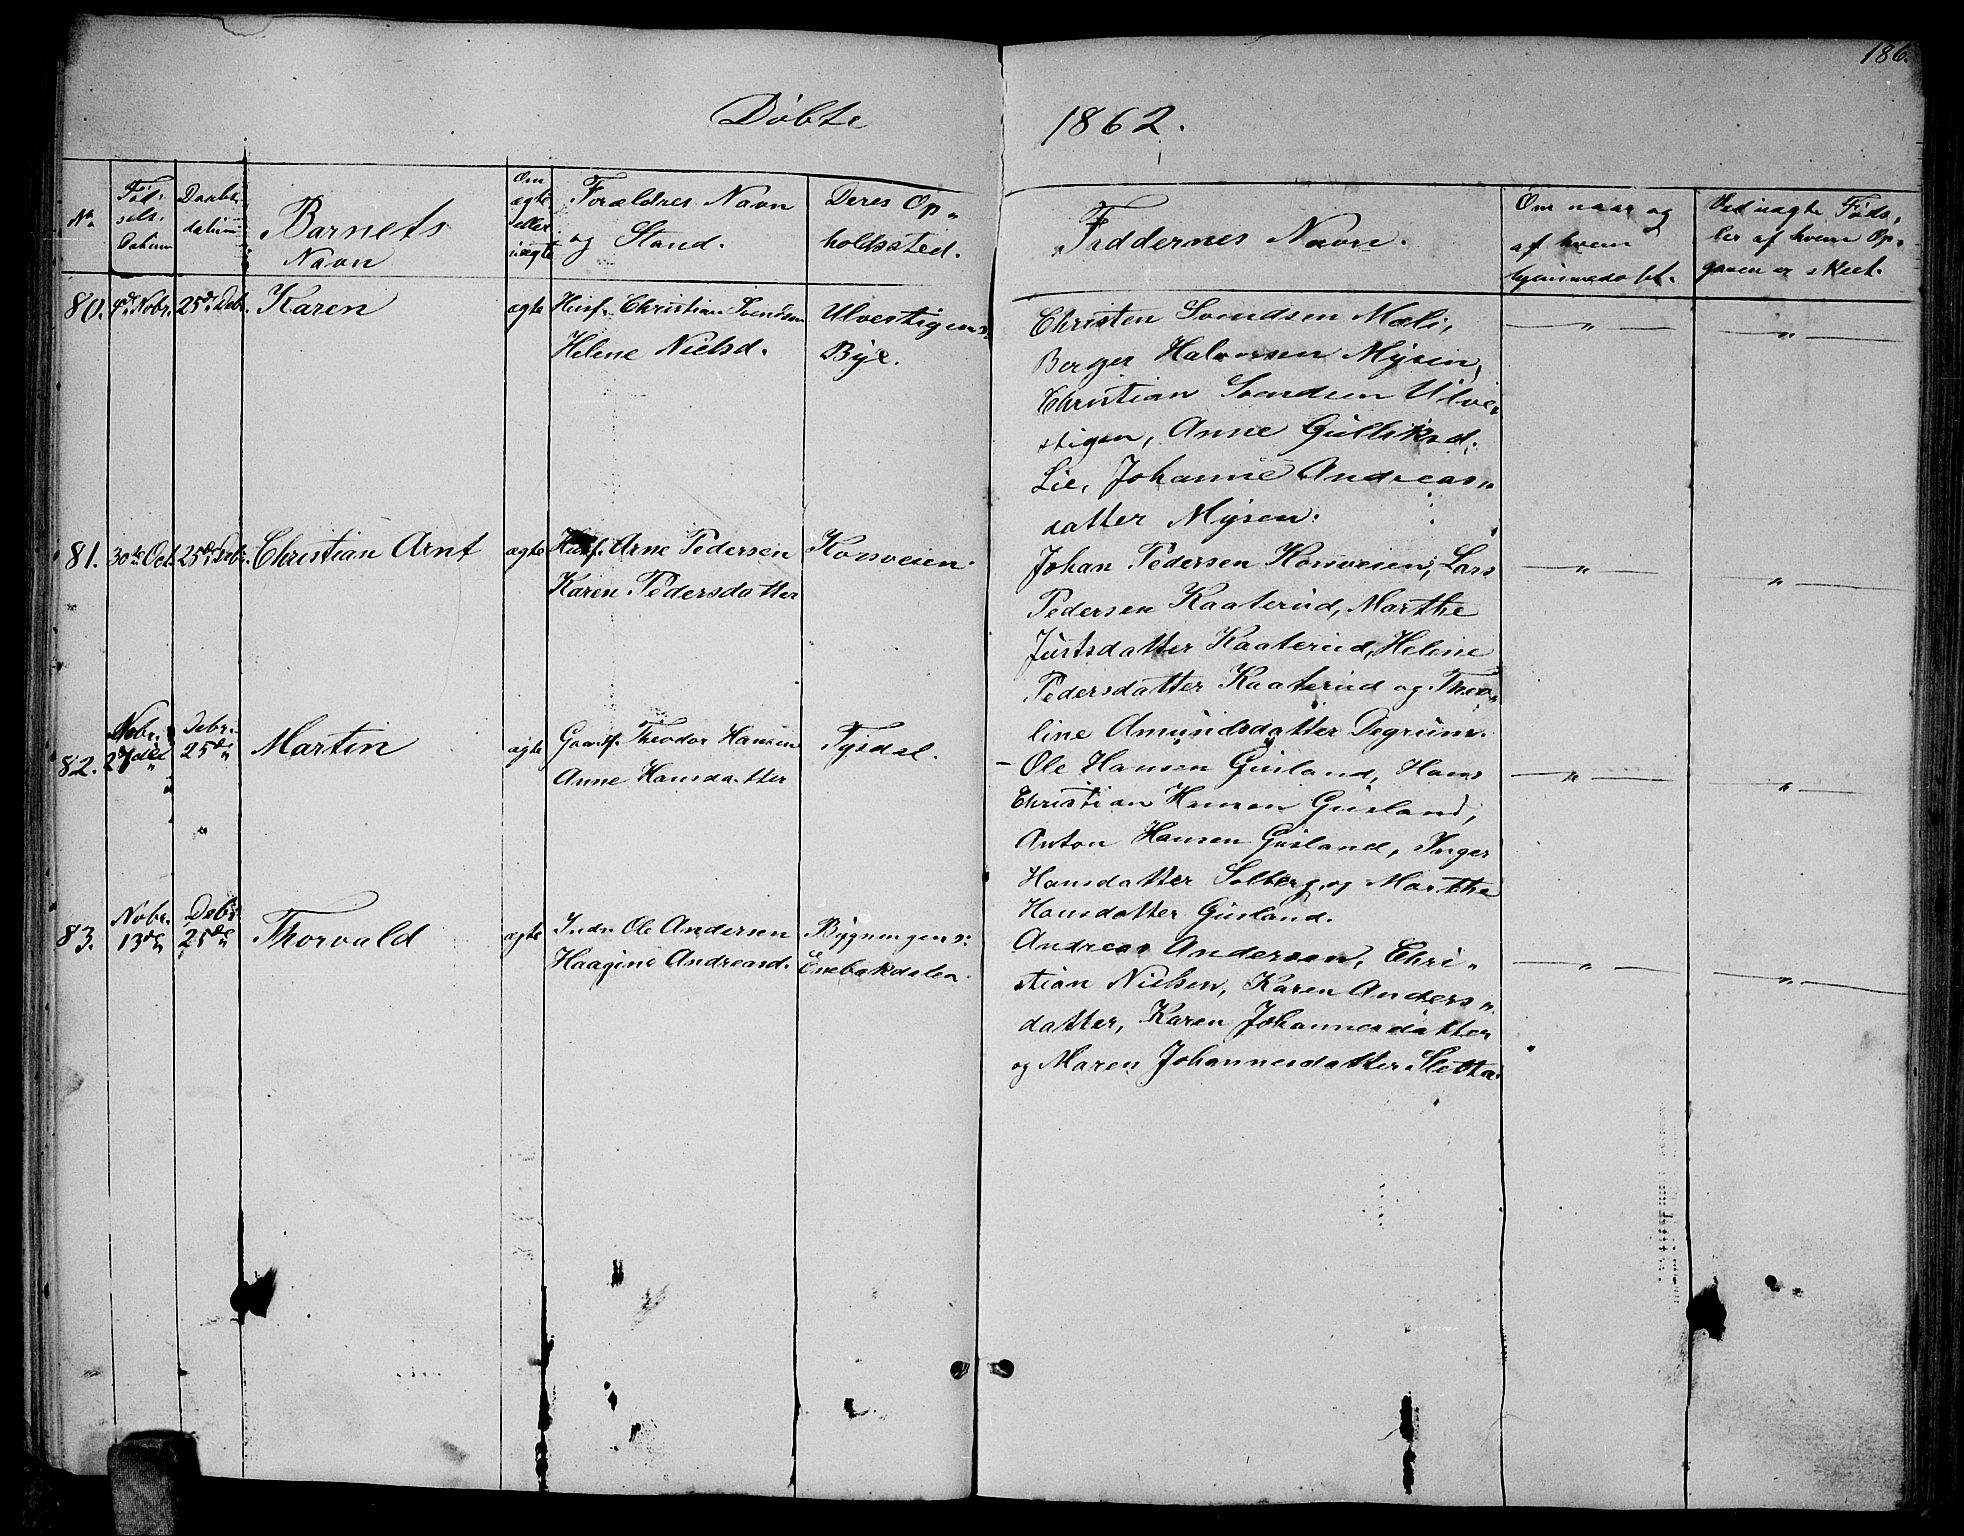 186.
Døbte 1862.
No.
Fød-
sels-
Datum
Daabs-
datum
Barnets
Navn
Om
ægte
eller
uægte
Forældres Navn
og Stand.
Deres Op-
holdssted.
Faddernes Navn.
Om naar og
af hvem
hjemmedøbt.
Ved uægte Føds-
ler af hvem Op-
gaven er skeet.
80. 4de Nobr. 25de Debr. Karen ægte Husf. Christian Svendsen
Helene Nielsd.
Ulvestigens
Bye.
Christen Svendsen Mæli,
Berger Halvorsen Mysen,
Christian Svendsen Ulve-
stigen, Anne Gulliksd.
Lie, Johanne Andreas-
datter Mysen.
— " — — " —
81. 30te Oct. 25de Debr. Christian Arnt ægte Husf. Arne Pedersen
Karen Pedersdatter
Korsveien.
Johan Pedersen Korsveien, Lars
Pedersen Kaaterud, Marthe
Justsdatter Kaaterud, Helene
Pedersdatter Kaaterud og Theo-
line Amundsdatter Degrum.
— " — — " —
82. Nobr.
27de
Debr.
25de Martin ægte Gaardf. Theodor Hansen
Anne Hansdatter
Tysdal.
Ole Hansen Gusland, Hans
Christian Hansen Gusland,
Anton Hansen Gusland, Inger
Hansdatter Solberg, og Marthe
Hansdatter Gusland.
— " — — " —
83. Nobr.
13de
Debr.
25de Thorvald ægte Inds. Ole Andersen
Haagine Andreasd.
Bygningen s:
Enebakdalen.
Andreas Andersen, Chri-
stian Nielsen, Karen Anders-
datter, Karen Johannesdatter
og Maren Johannesdatter Sletta.
— " — — " —